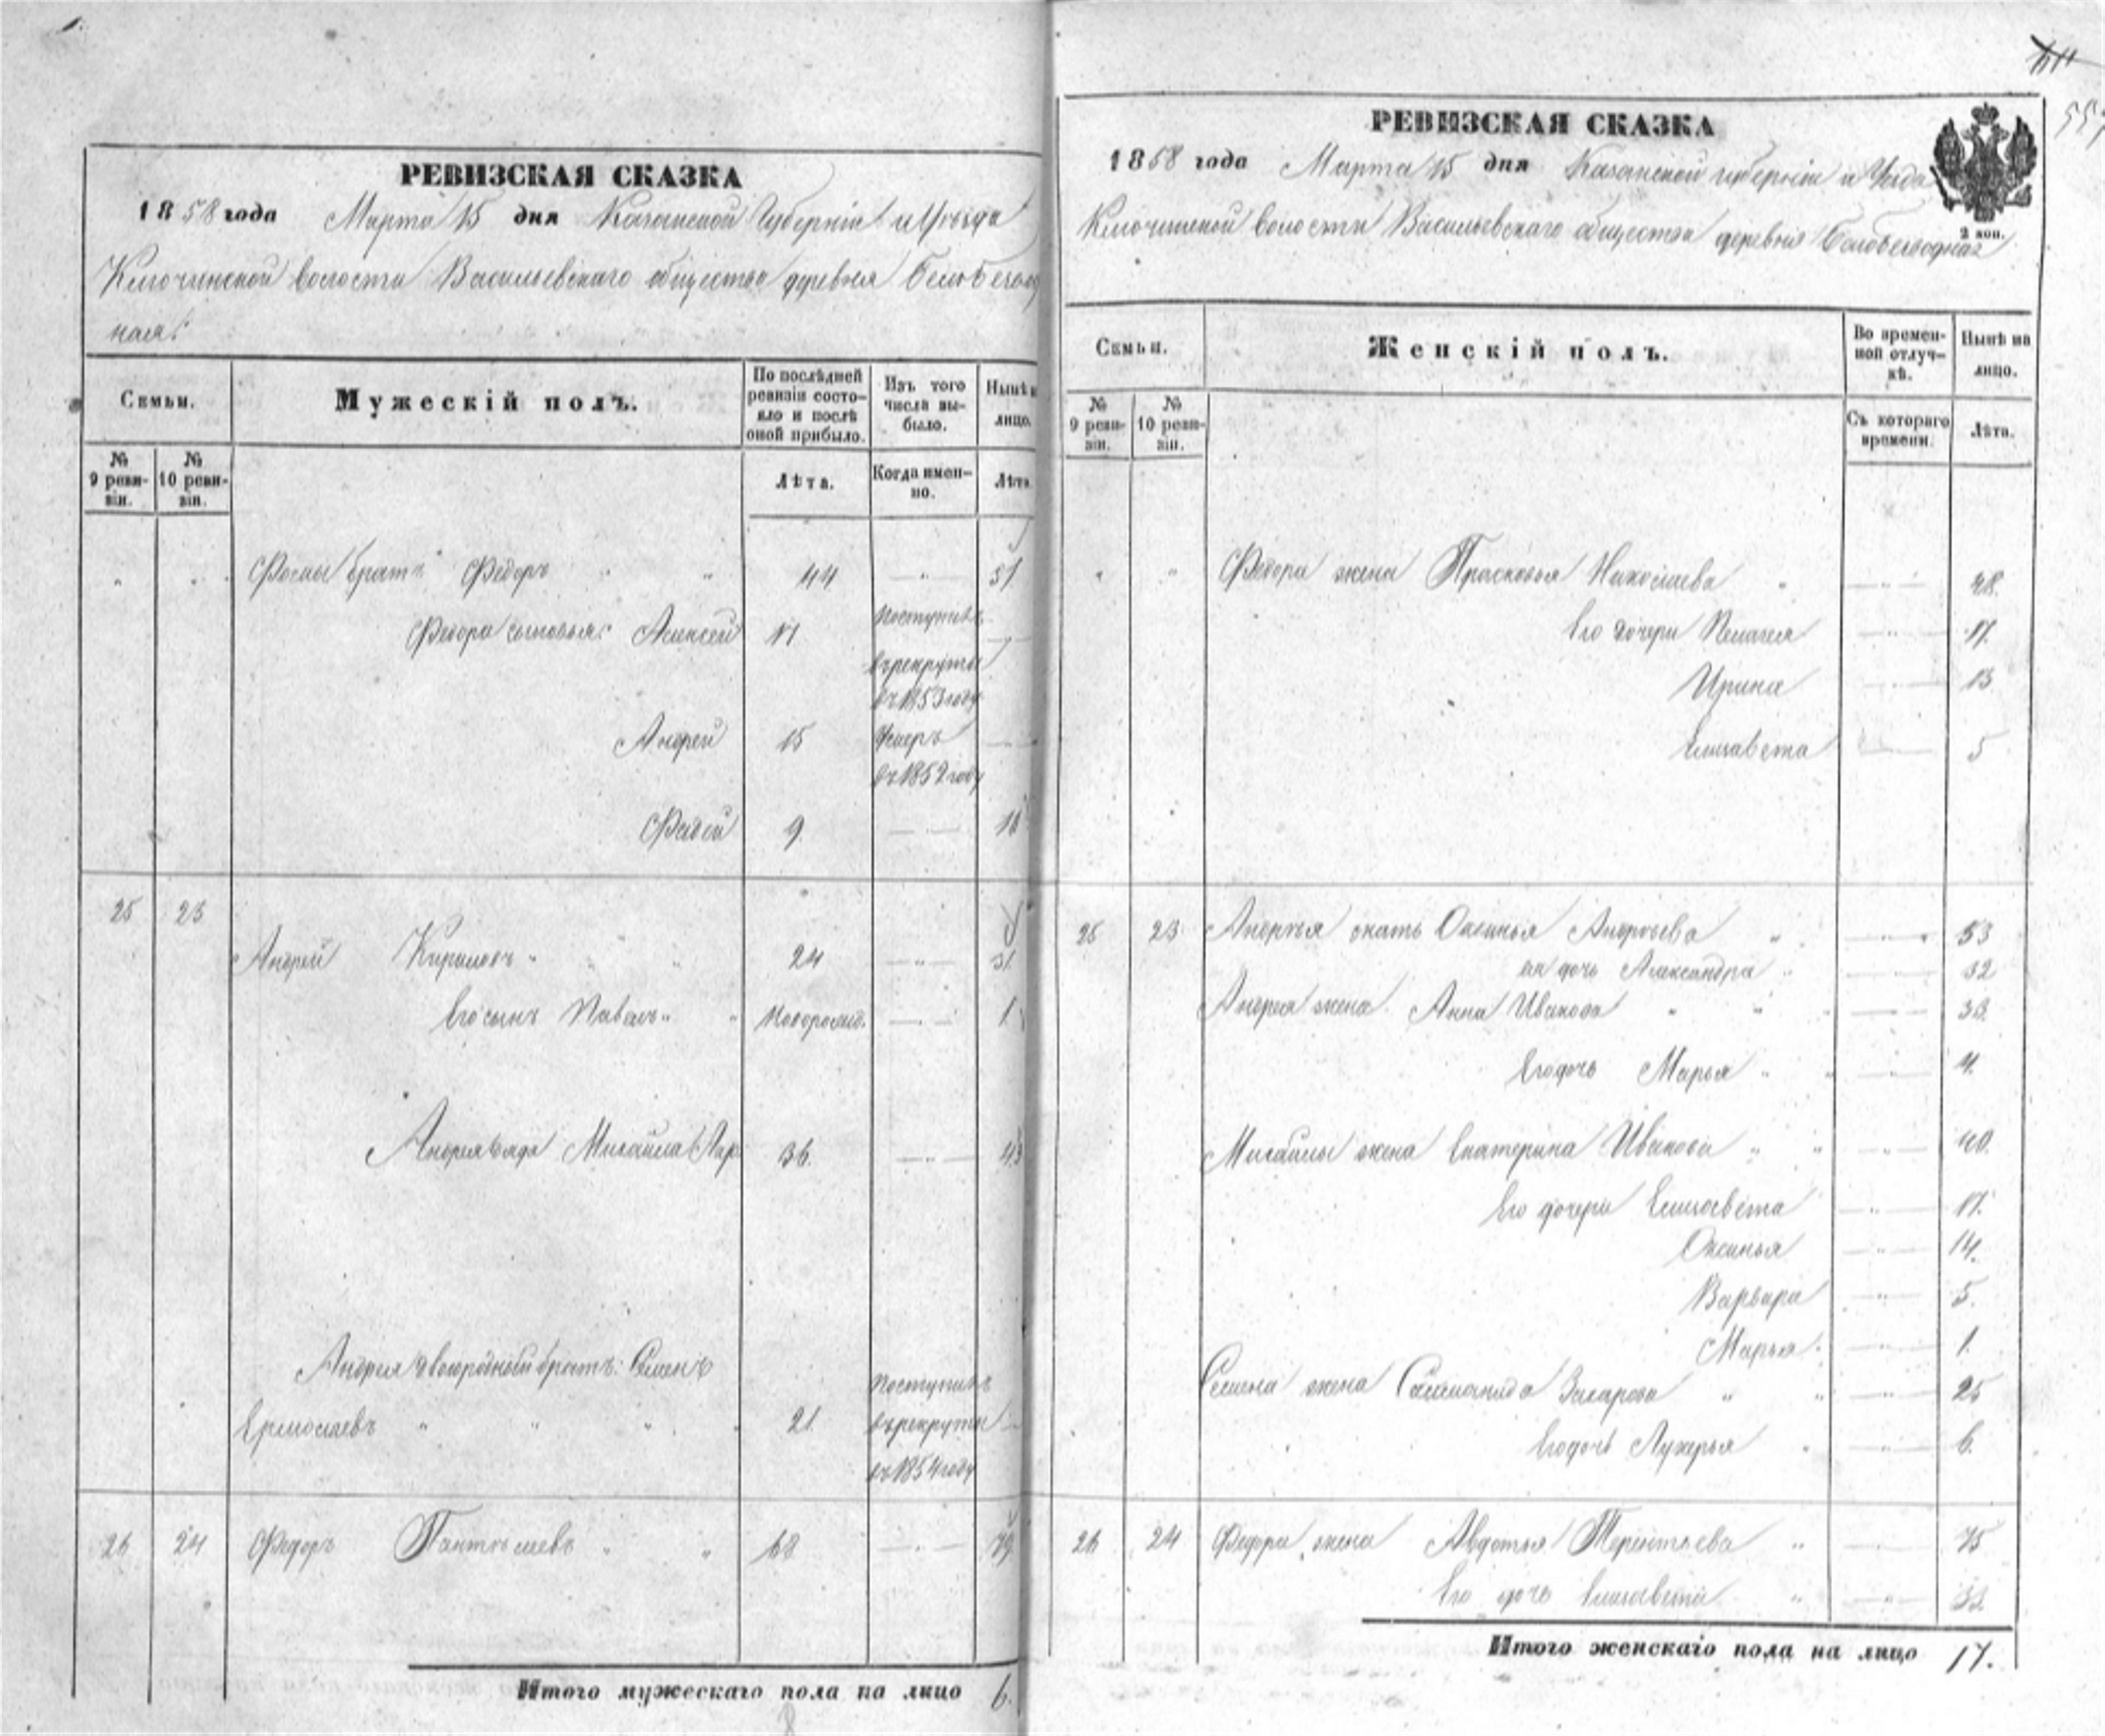 РЕВИЗСКАЯ СКАЗКА
1858 года Марта 15 дня Казанской Губерніи и Уѣзда
Ключинской волости Васильевскаго общества деревня Белобезвод
ная:
Семьи.
Мужескій полъ.
По послѣдней ревизіи состояло и послѣ оной прибыло.
Изъ того числа выбыло.
Нынѣ н лицо.
№ 9 ревизіи.
№ 10 ревизіи.
Лѣта.
Когда именно.
Лѣта
Фомы братъ Федоръ 44 51
Федора сыновья: Алексей
Поступилъ
въ рекруты
въ 1853 году
Андрей 15 Умеръ
въ 1852 году
9
25 23
Андрей Кириловъ 24 31
Его сынъ Павелъ Новорожд. 1
Андрея дядя Михайла 36 43
Андрея двоюродный братъ: Семенъ
Ермолаевъ 21
Поступилъ
въ рекруты
въ 1854 году
26 24 Федоръ Пантелеевъ 68
Итого мужескаго пола на лицо 6.
РЕВИЗСКАЯ СКАЗКА
2 коп.
1858 года Марта 15 дня Казанской губерніи и Уѣзда
Ключинской волости Васильевскаго общества деревня
Семьи.
Женскій полъ.
Во временной отлучкѣ.
Нынѣ на лицо.
№ 9 ревизіи.
№ 10 ревизіи.
Съ котораго времени.
Лѣта.
Федора жена Прасковья Николаева 48.
Его дочери Пелагея 17.
Ирина 13
Елизавета 5
25 23 Андрея мать Оксинья Андреева 53
ея дочь Александра 32
Андрея жена Анна Иванова 33.
Его дочь Марья 4.
Михайлы жена Екатерина Иванова 40.
Его дочери Елизавета 17.
Оксинья 14.
Варвара 5.
Марья 1.
Семена жена Соломонида Захарова 25
Его дочь Лукерья 6.
26 24 Федора жена Авдотья Терентьева 75
Его дочь Елизавета 33.
Итого женскаго пола на лицо 17.